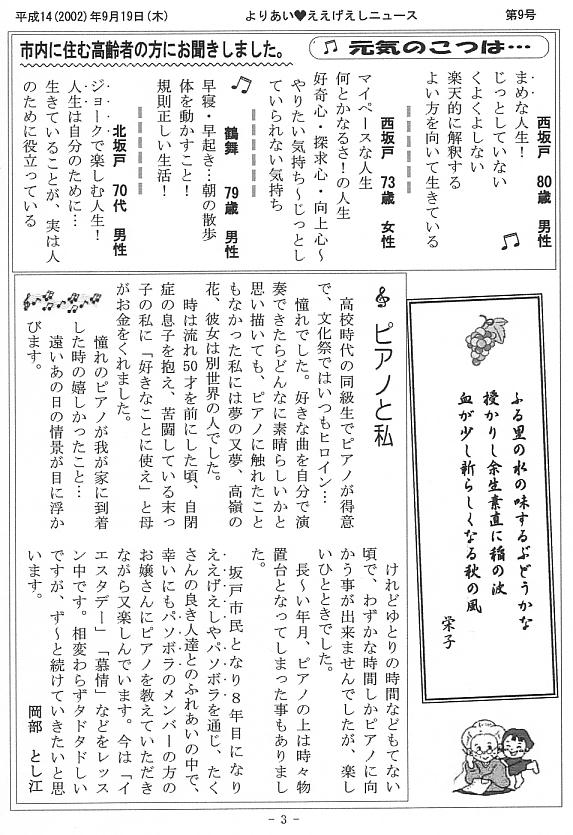 平成14(2002)年9月19日(木)
よりあい♥ええげえしニュース
第9号
市内に住む高齢者の方にお聞きしました。
元気のこつは…
西坂戸 80歳 男性
まめな人生！
じっとしていない
くよくよしない
楽天的に解釈する
よい方を向いて生きている
西坂戸 73歳 女性
マイペースな人生
何とかなるさ！の人生
好奇心・探求心・向上心～
やりたい気持ち～じっとし
ていられない気持ち
鶴舞 79歳 男性
早寝・早起き…朝の散歩
体を動かすこと！
規則正しい生活！
北坂戸 70代 男性
ジョークで楽しむ人生！
人生は自分のために…
生きていることが、実は人
のために役立っている
ふる里の水の味するぶどうかな
授かりし余生素直に稲の波
血が少し新らしくなる秋の風
栄子
ピアノと私
高校時代の同級生でピアノが得意
で、文化祭ではいつもヒロイン…
憧れでした。好きな曲を自分で演
奏できたらどんなに素晴らしいかと
思い描いても、ピアノに触れたこと
もなかった私には夢の又夢、高嶺の
花、彼女は別世界の人でした。
時は流れ50才を前にした頃、自閉
症の息子を抱え、苦闘している末っ
子の私に「好きなことに使え」と母
がお金をくれました。
憧れのピアノが我が家に到着
した時の嬉しかったこと…
遠いあの日の情景が目に浮か
びます。
けれどゆとりの時間などもてない
頃で、わずかな時間しかピアノに向
かう事が出来ませんでしたが、楽し
いひとときでした。
長～い年月、ピアノの上は時々物
置台となってしまった事もありまし
た。
坂戸市民となり8年目になり
ええげえしやパソボラを通じ、たく
さんの良き人達とのふれあいの中で、
幸いにもパソボラのメンバーの方の
お嬢さんにピアノを教えていただき
ながら又楽しんでいます。今は「イ
エスタデー」「慕情」などをレッス
ン中です。相変わらずタドタドしい
ですが、ず～と続けていきたいと思
います。
岡部 とし江
- 3 -